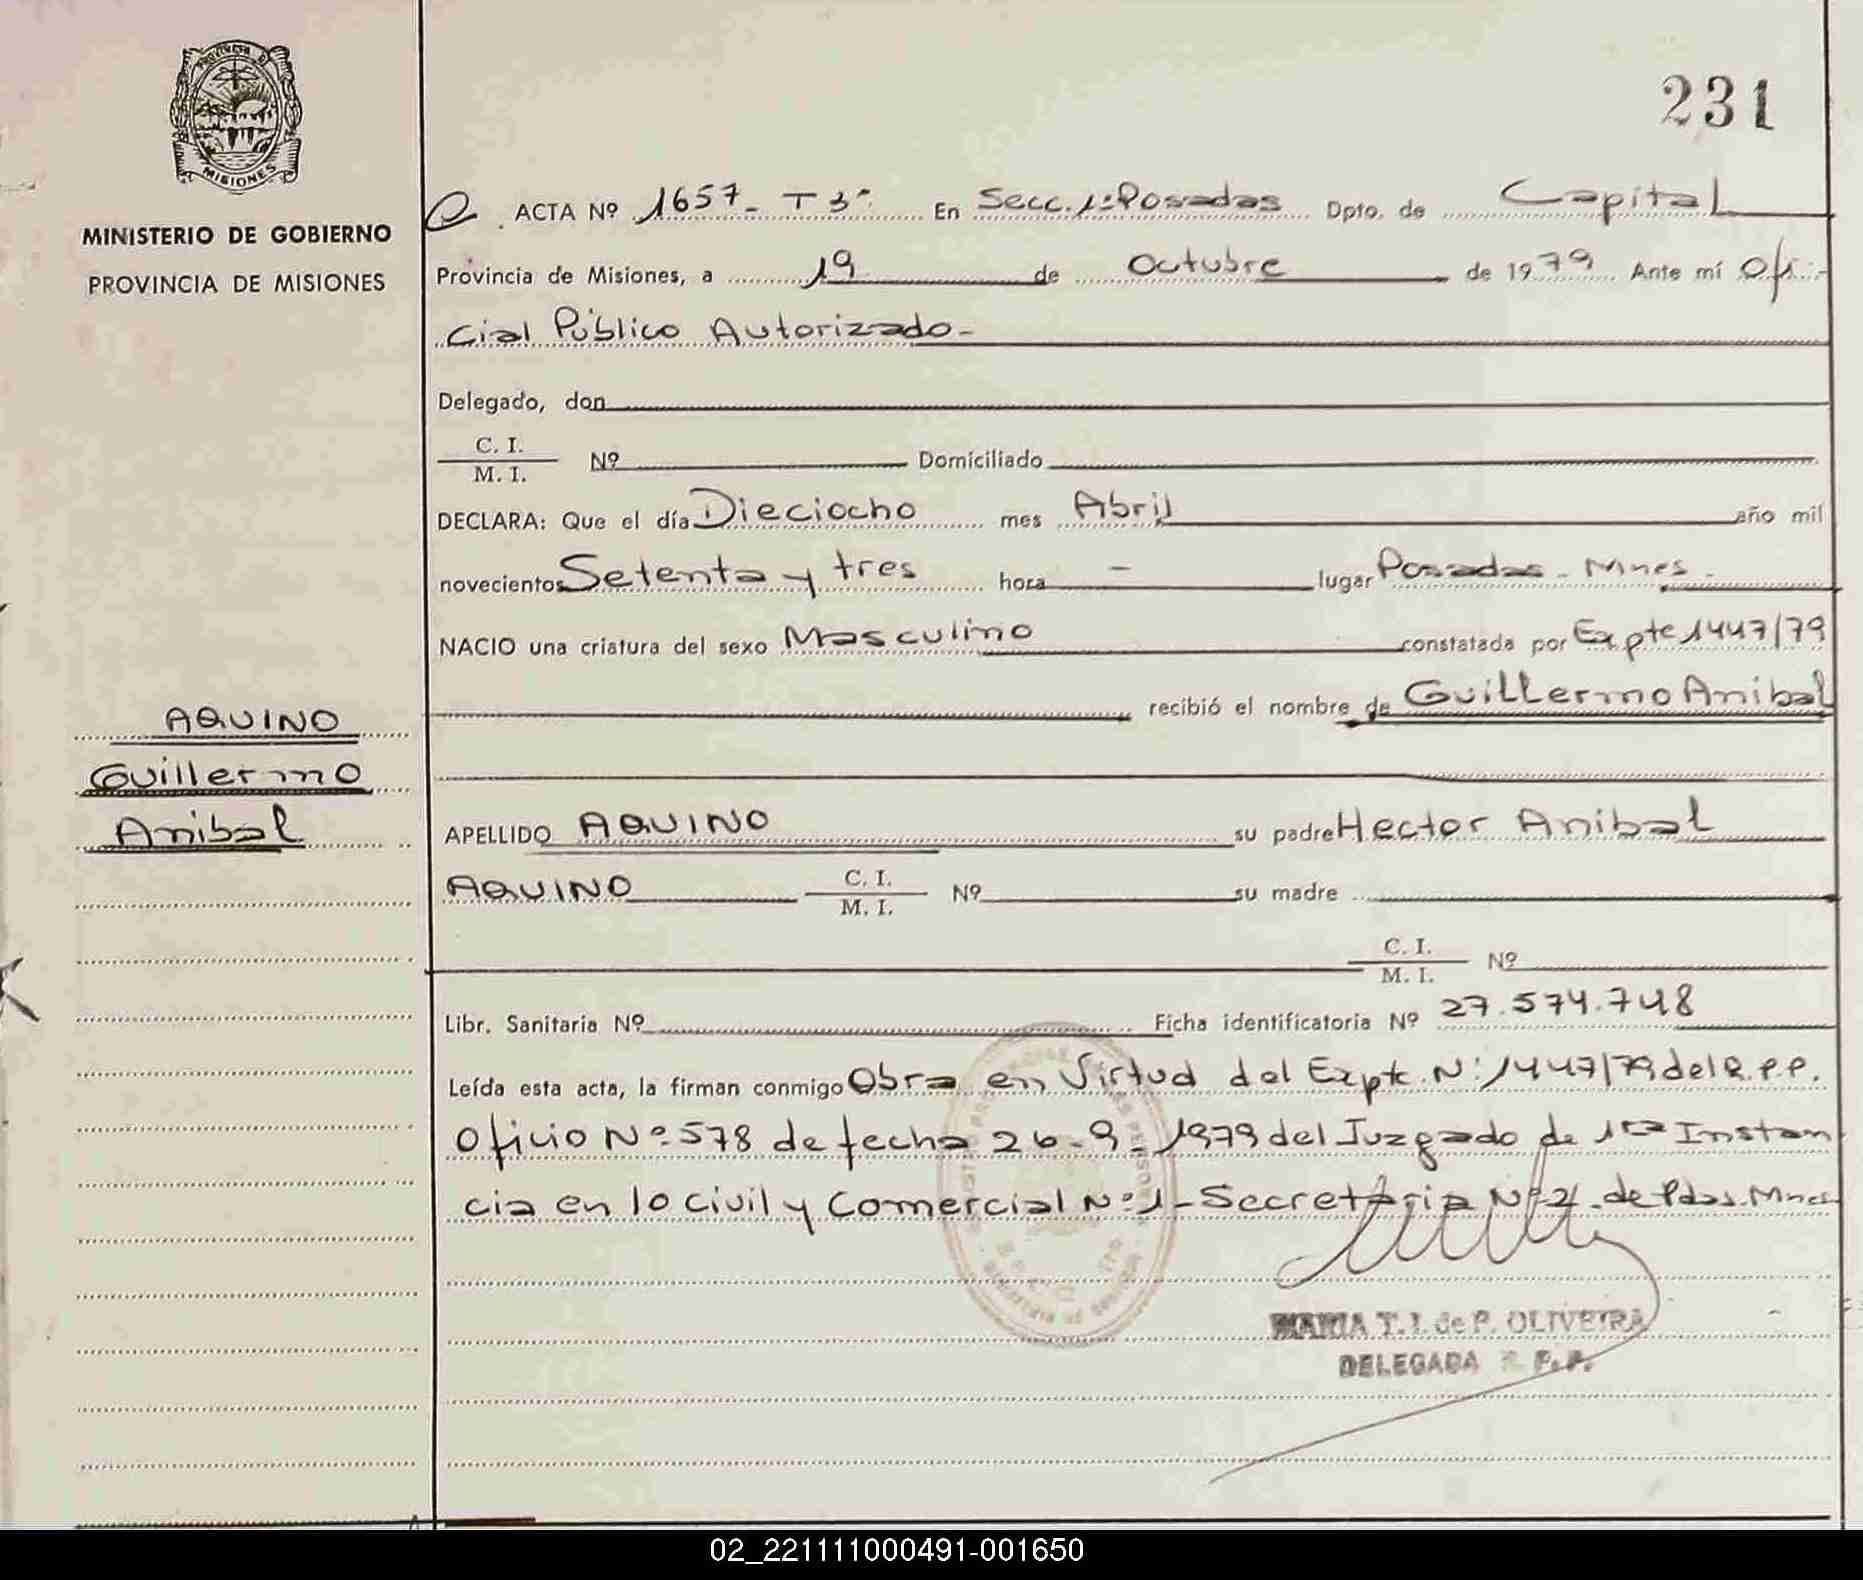 PROVINCIA DE
MISIONES
MINISTERIO DE GOBIERNO
PROVINCIA DE MISIONES
AQUINO
Guillermo
Anibal
231
ACTA Nº 1657 - T 3º En Secc. 1ª Posadas Dpto. de Capital
Provincia de Misiones, a 19 de Octubre de 1979 Ante mí Ofi-
cial Público Autorizado -
Delegado, don
C. I.
M. I. Nº Domiciliado
DECLARA: Que el día Dieciocho mes Abril año mil
novecientos Setenta y tres hora - lugar Posadas - Mnes -
NACIO una criatura del sexo Masculino constatada por Expte 1447/79
recibió el nombre de Guillermo Anibal
APELLIDO AQUINO su padre Hector Anibal
AQUINO C. I. M. I. Nº su madre
C. I.
M. I. Nº
Libr. Sanitaria Nº Ficha identificatoria Nº 27.574.748
Leída esta acta, la firman conmigo Obra en Virtud del Expte. Nº 1447/79 del R.P.P.
Oficio Nº 578 de fecha 26-9-1979 del Juzgado de 1ra Instan
cia en lo Civil y Comercial Nº 1 - Secretaria Nº 2 - de Pdas. Mnes
MARIA T. I. de P. OLIVEIRA
DELEGADA R. P. P.
02_221111000491-001650